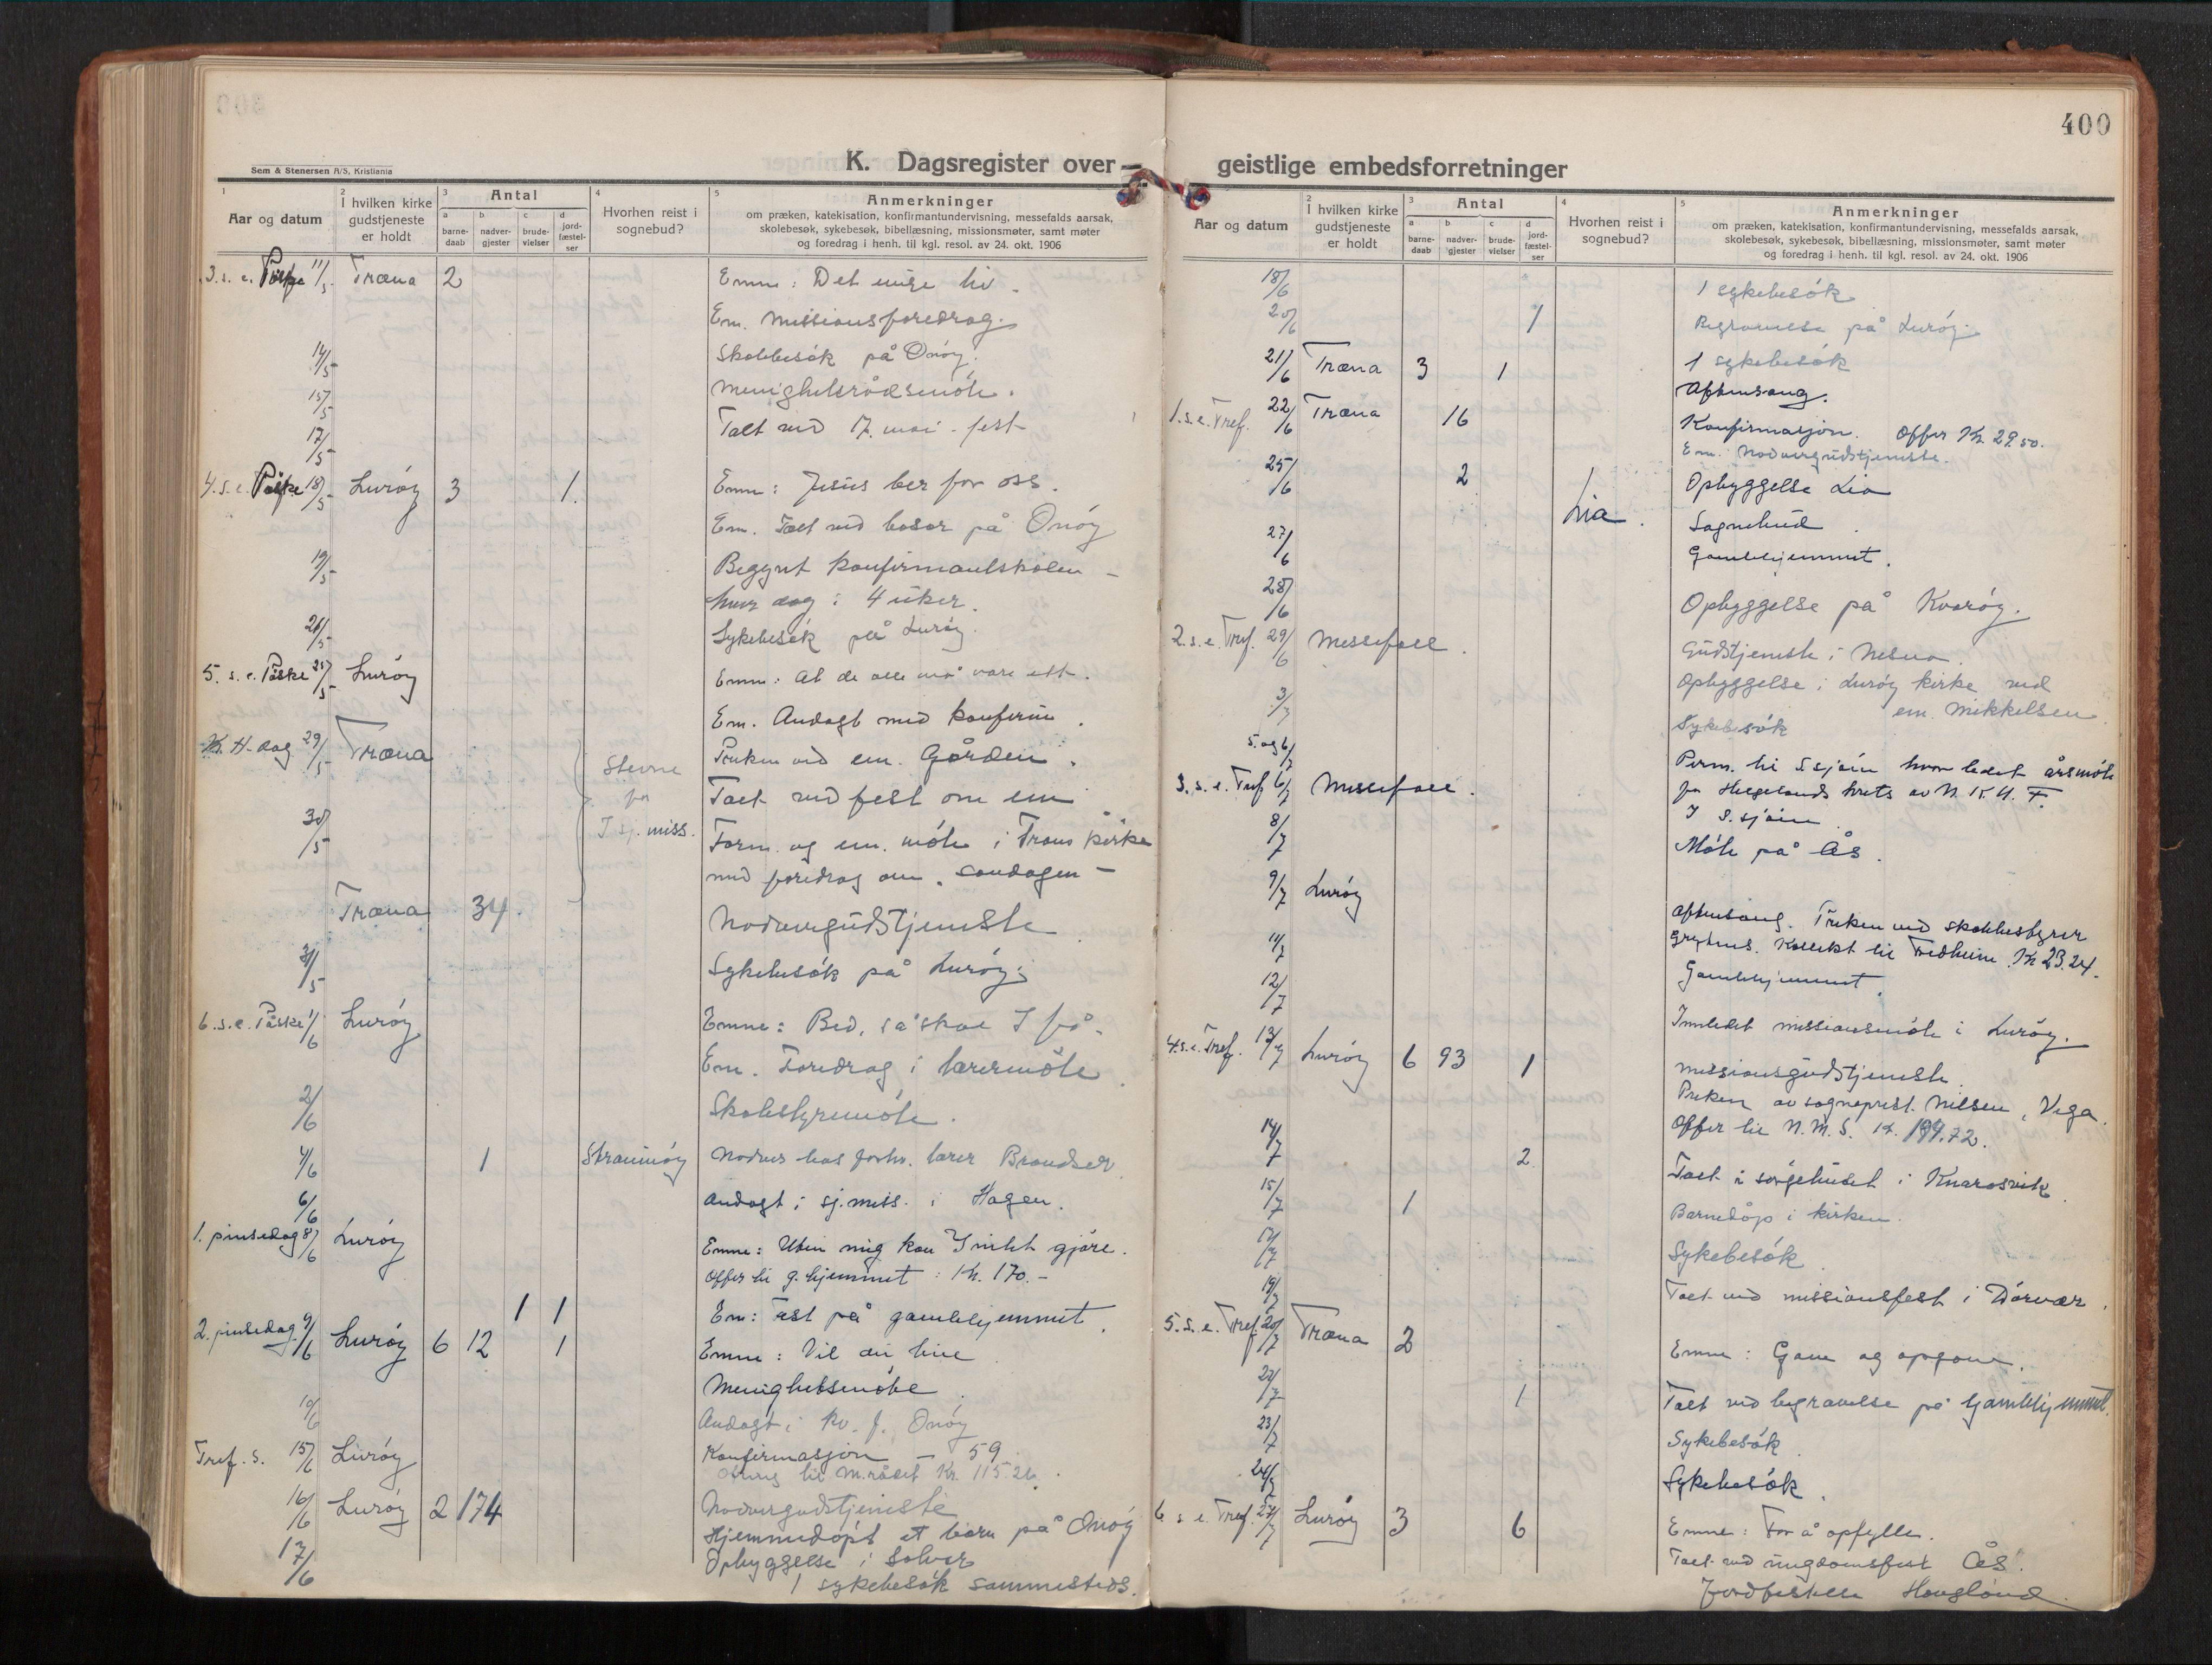 K. Dagsregister over
Sem & Stenersen A/S, Kristiania
1 Aar og datum
2 I hvilken kirke gudstjeneste er holdt
3 Antal
a barnedaab b nadvergjester c brudevielser d jordfæstelser
4 Hvorhen reist i sognebud?
5 Anmerkninger
om præken, katekisation, konfirmantundervisning, messefalds aarsak,
skolebesøk, sykebesøk, bibellæsning, missionsmøter, samt møter
og foredrag i henh. til kgl. resol. av 24. okt. 1906
3. s. e. Påske 11/5 Træna 2 Emne: Det evige liv.
Em. Missionsforedrag.
14/5 Skolebesök på Onöy.
15/5 Menighetsrådsmöte.
17/5 Talt ved 17. mai-fest
4. s. e. Påske 18/5 Luröy 3 1. Emne: Jesus ber for oss.
Em. Talt ved basar på Onöy
19/5 Begynt konfirmantskolen -
hver dag i 4 uker.
21/5 Sykebesök på Luröy.
5. s. e. Påske 25/5 Luröy Emne: At de alle må være ett.
Em. Andagt med konfirm.
Kr. H. dag 29/5 Træna Preken ved em. Gården.
Stevne for I sj. miss.
Talt ved fest om em
30/5 Form. og em. möte i Træna kirke
med foredrag om söndagen -
Træna 34 Nadvergudstjeneste
31/5 Sykebesök på Luröy.
6. s. e. Påske 1/6 Luröy Emne: Bed, så skal I få.
Em. Foredrag i lærermöte.
2/6 Skolestyremöte.
4/6 1 Nadver hos forhv. lærer
6/6 Andagt i sj. miss. i Hagen.
1. pinsedag 8/6 Luröy Emne: Uten mig kan I intet gjöre.
Offer til g. hjemmet: Kr. 170.-
1 1 Em: Fest på gamlehjemmet.
2. pinsedag 9/6 Luröy 6 12 1 Emne: Vil du
Menighetsmöte
10/6 Andagt i kv. f. Onöy
Tref. s. 15/6 Luröy Konfirmasjon - 59
Ofring til M.rådet Kr. 115.26.
16/6 Luröy 2 174 Nadvergudstjeneste
Hjemmedöpt et barn på Onöy
17/6 Opbyggelse i Solvær
1 sykebesök sammesteds.
400
geistlige embedsforretninger
Aar og datum
2 I hvilken kirke gudstjeneste er holdt
3 Antal
a barnedaab b nadvergjester c brudevielser d jordfæstelser
4 Hvorhen reist i sognebud?
5 Anmerkninger
om præken, katekisation, konfirmantundervisning, messefalds aarsak,
skolebesøk, sykebesøk, bibellæsning, missionsmøter, samt møter
og foredrag i henh. til kgl. resol. av 24. okt. 1906
18/6 1 sykebesök
20/6 1 Begravelse på Luröy.
21/6 Træna 3 1 1 sykebesök
Aftensang.
1. s. e. Tref. 22/6 Træna 16 Konfirmasjon. Offer Kr. 29.50.
Em. Nadvergudstjeneste.
25/6 2 Opbyggelse Lia
Lia. Sognebud.
27/6 Gamlehjemmet.
28/6 Opbyggelse på Kvaröy.
2. s. e. Tref. 29/6 Messefall. Gudstjeneste i Nesna.
Opbyggelse i Luröy kirke ved
em. Mikkelsen.
3/7 Sykebesök
5. og 6/7 Perm. til S.sjöen hvor ledet årsmöte
for Helgelands krets av N. K. U. F.
3. s. e. Tref 6/7 Messefall. I S.sjöen.
8/7 Möte på Ås.
9/7 Luröy Aftensang. Preken ved skolebestyrer
Kollekt til Fredheim. Kr 23.24.
11/7 Gamlehjemmet.
12/7 Innledet missionsmöte i Luröy.
4. s. e. Tref. 13/7 Luröy 6 93 1 Missionsgudstjeneste.
Preken av sogneprest Nilsen, Vega.
Offer til N. M. S. Kr. 199.72.
14/7 2 Talt i sörgehuset i Knarosvik.
15/7 1 Barnedåp i kirken.
17/7 Sykebesök.
19/7 Talt ved missionsfest i Dörvær.
5. s. e. Tref. 20/7 Træna 2 Emne: Gave og opgave.
22/7 1 Talt ved begravelse på Gamlehjemmet.
23/7 Sykebesök.
24/7 Sykebesök.
6 s. e. Tref. 27/7 Luröy 3 6 Emne: For å opfylle.
Talt ved ungdomsfest Ås.
Jordfestelse